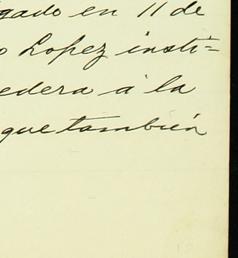 gado en 11 de
o Lopez insti=
edera a la
que también